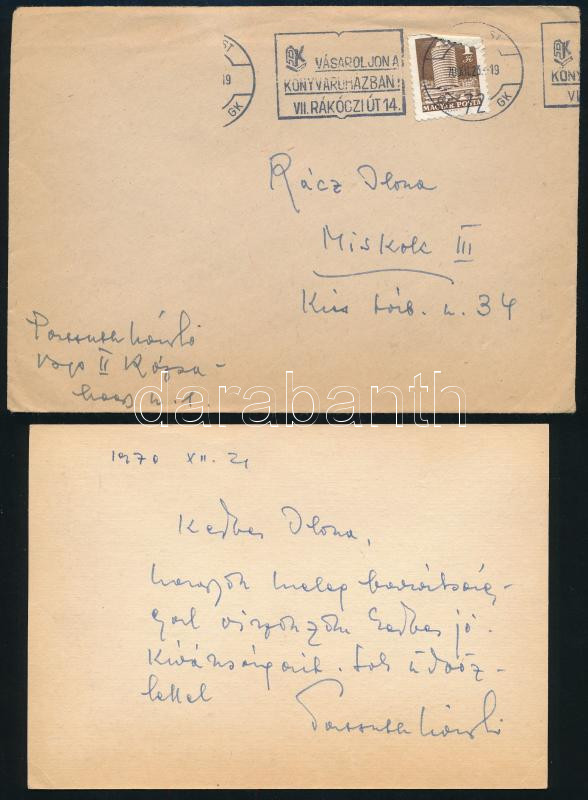 ÁK VÁSÁROLJON A
KÖNYVÁRUHÁZBAN!
VII. RÁKÓCZI ÚT 14.
ST
19
GK
1 Ft
MAGYAR POSTA
70 XII. 23.-19
72
GK
KÖNY
VI
Rácz Ilona
Miskolc III
Kiss tárb. u. 34
Passuth László
Bp II Rózsa-
hegy u. 1.
darabanth
1970 XII. 21
Kedves Ilona,
hasonló meleg barátság-
gal viszonzom kedves jó
kívánságait. Sok üdvöz-
lettel
Passuth László